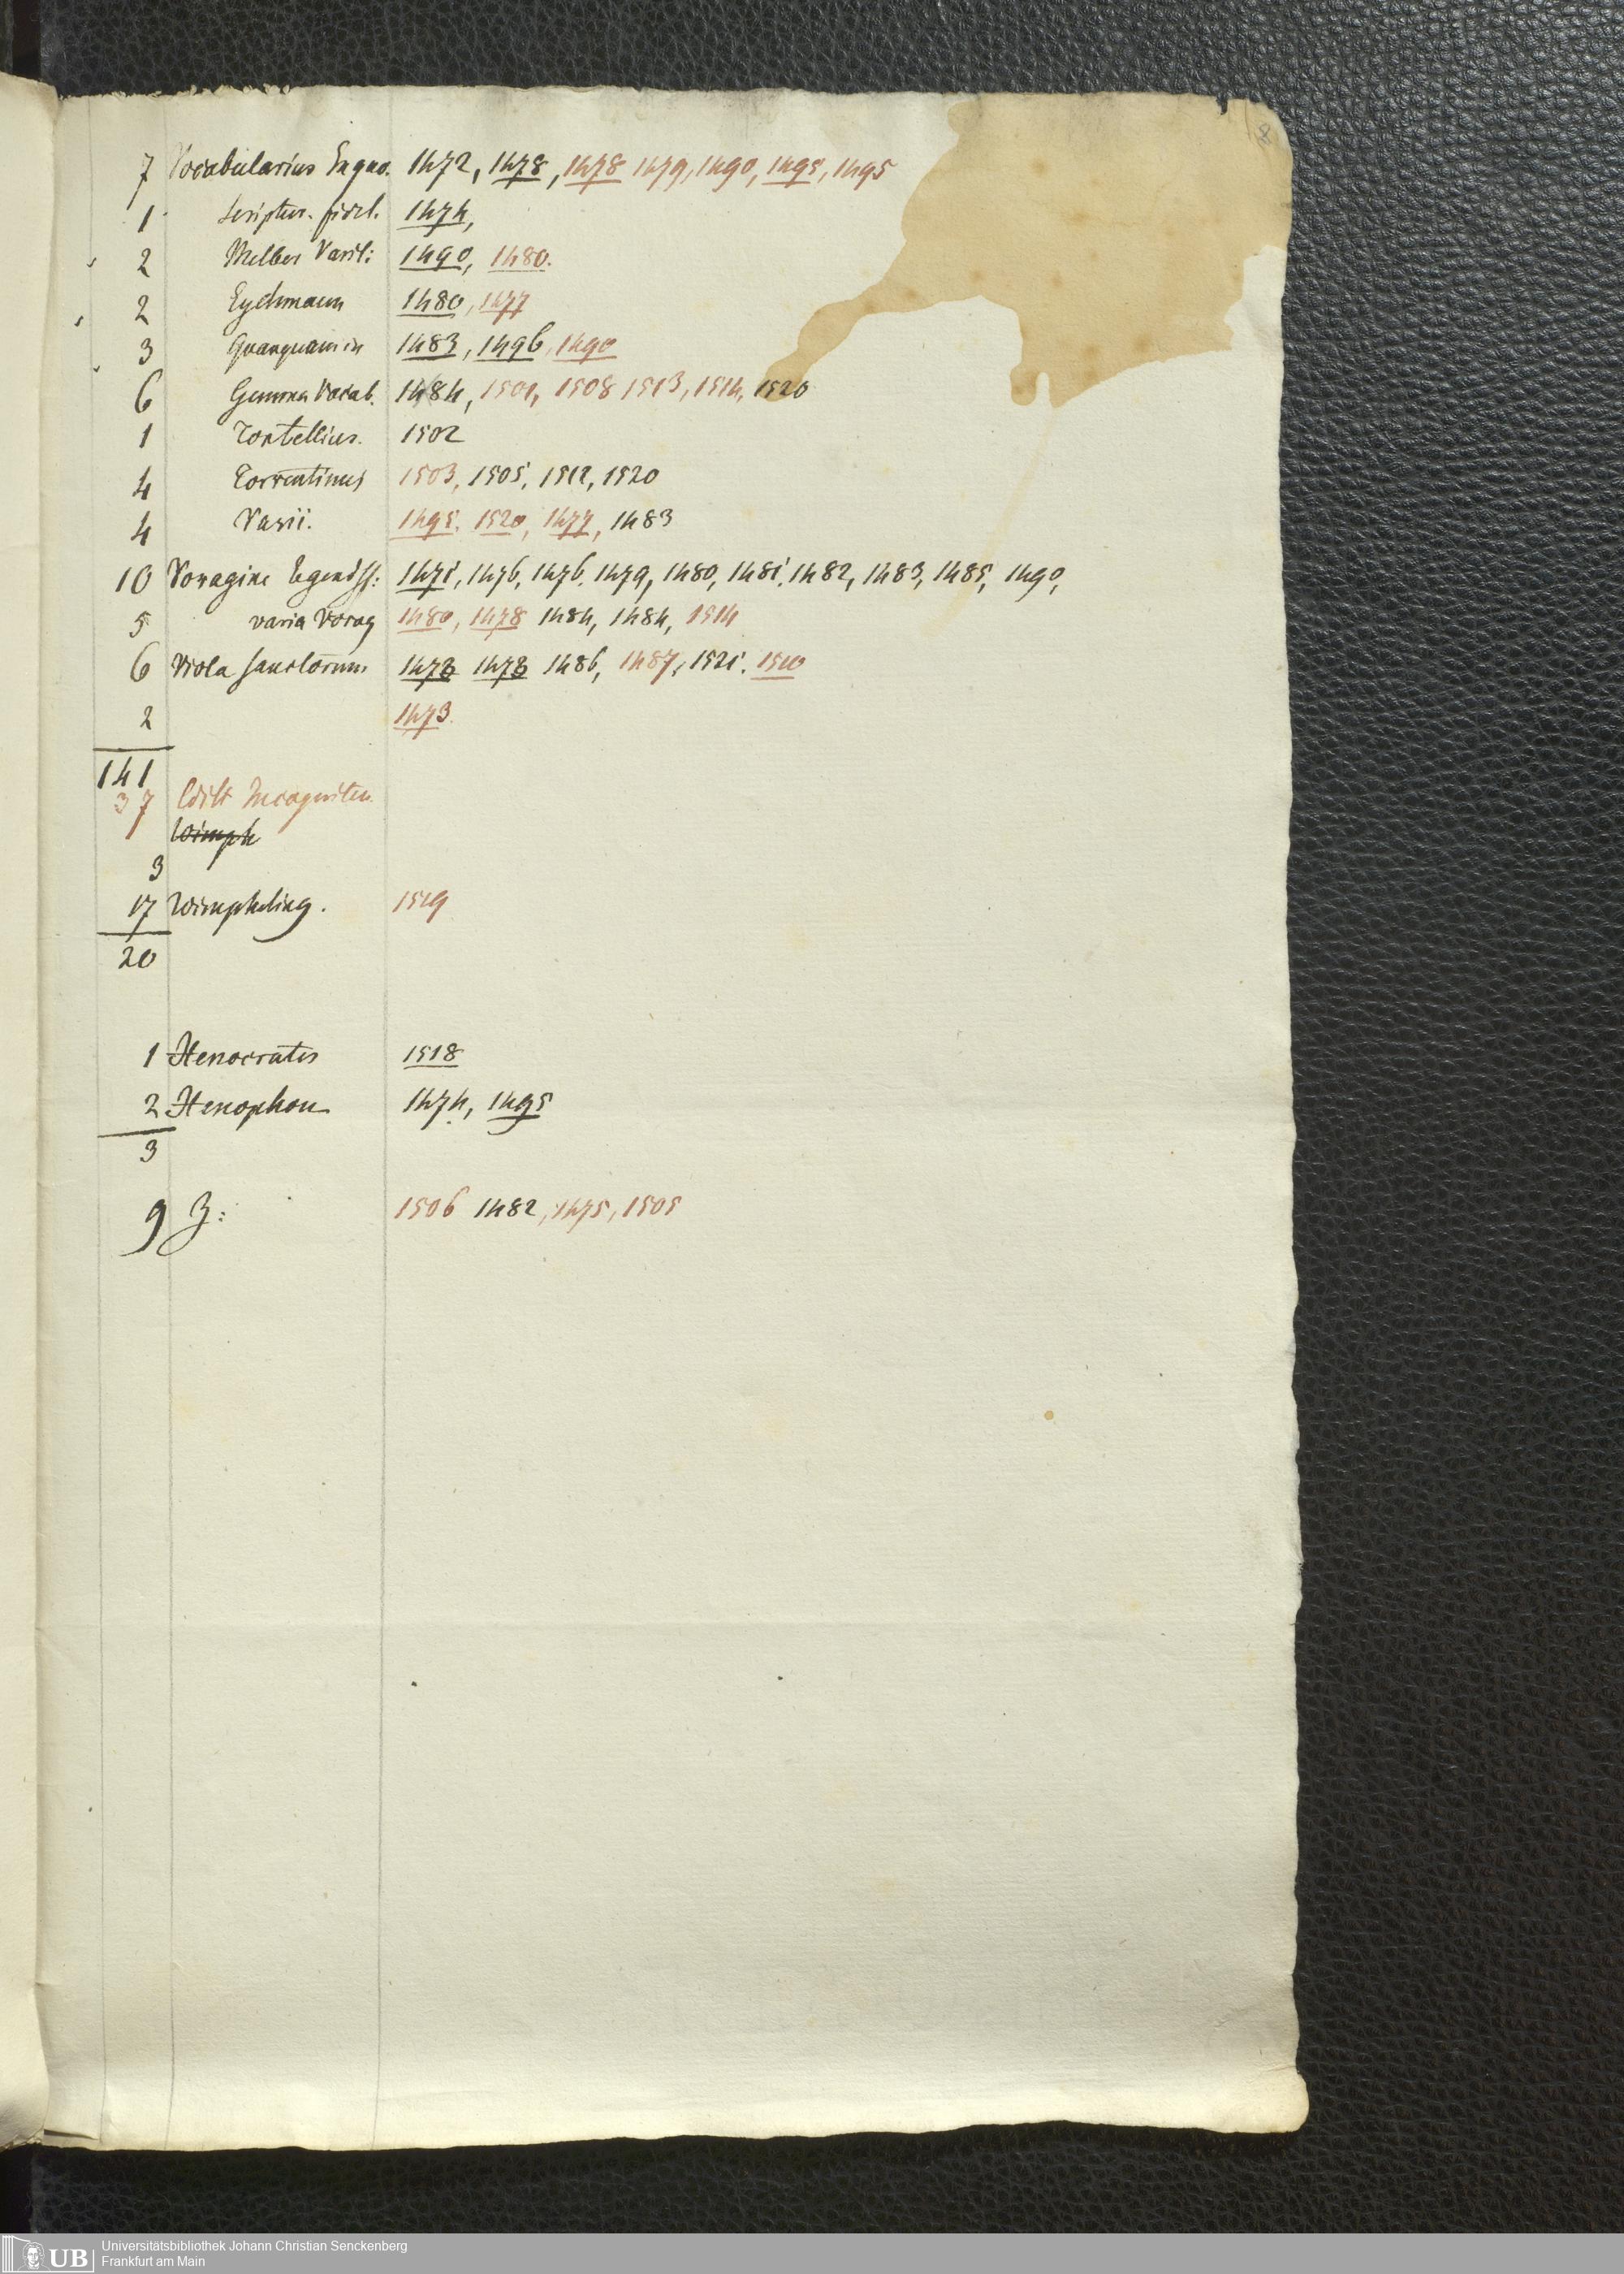 8
7 Vocabularius Ex quo. 1472, 1478, 1478 1479, 1490, 1495, 1495
1 Scriptur. fidel. 1474,
2 Melber Varil: 1490, 1480.
2 Eychmann 1480, 1477
3 Quanquam in 1483, 1496, 1490
6 Gemma Vocab. 1484, 1501, 1508 1513, 1514, 1520
1 Tortellius. 1502
4 Torrentinus 1503, 1505, 1512, 1520
4 Varii. 1495. 1520, 1477, 1483
10 Voragine legend SS: 1471, 1476, 1476. 1479, 1480, 1481, 1482, 1483, 1485, 1490,
5 varia Vorag 1480, 1478 1484, 1484, 1514
6 Viola sanctorum 1478 1478 1486, 1487, 1521. 1510
2 1473.
141
37 Edit Incogniten
Wimph
3
17 Wimpheling. 1519
20
1 Xenocrates 1518
2 Xenophon 1474, 1495
3
9 Z: 1506 1482, 1475, 1505
UB Universitätsbibliothek Johann Christian Senckenberg
Frankfurt am Main